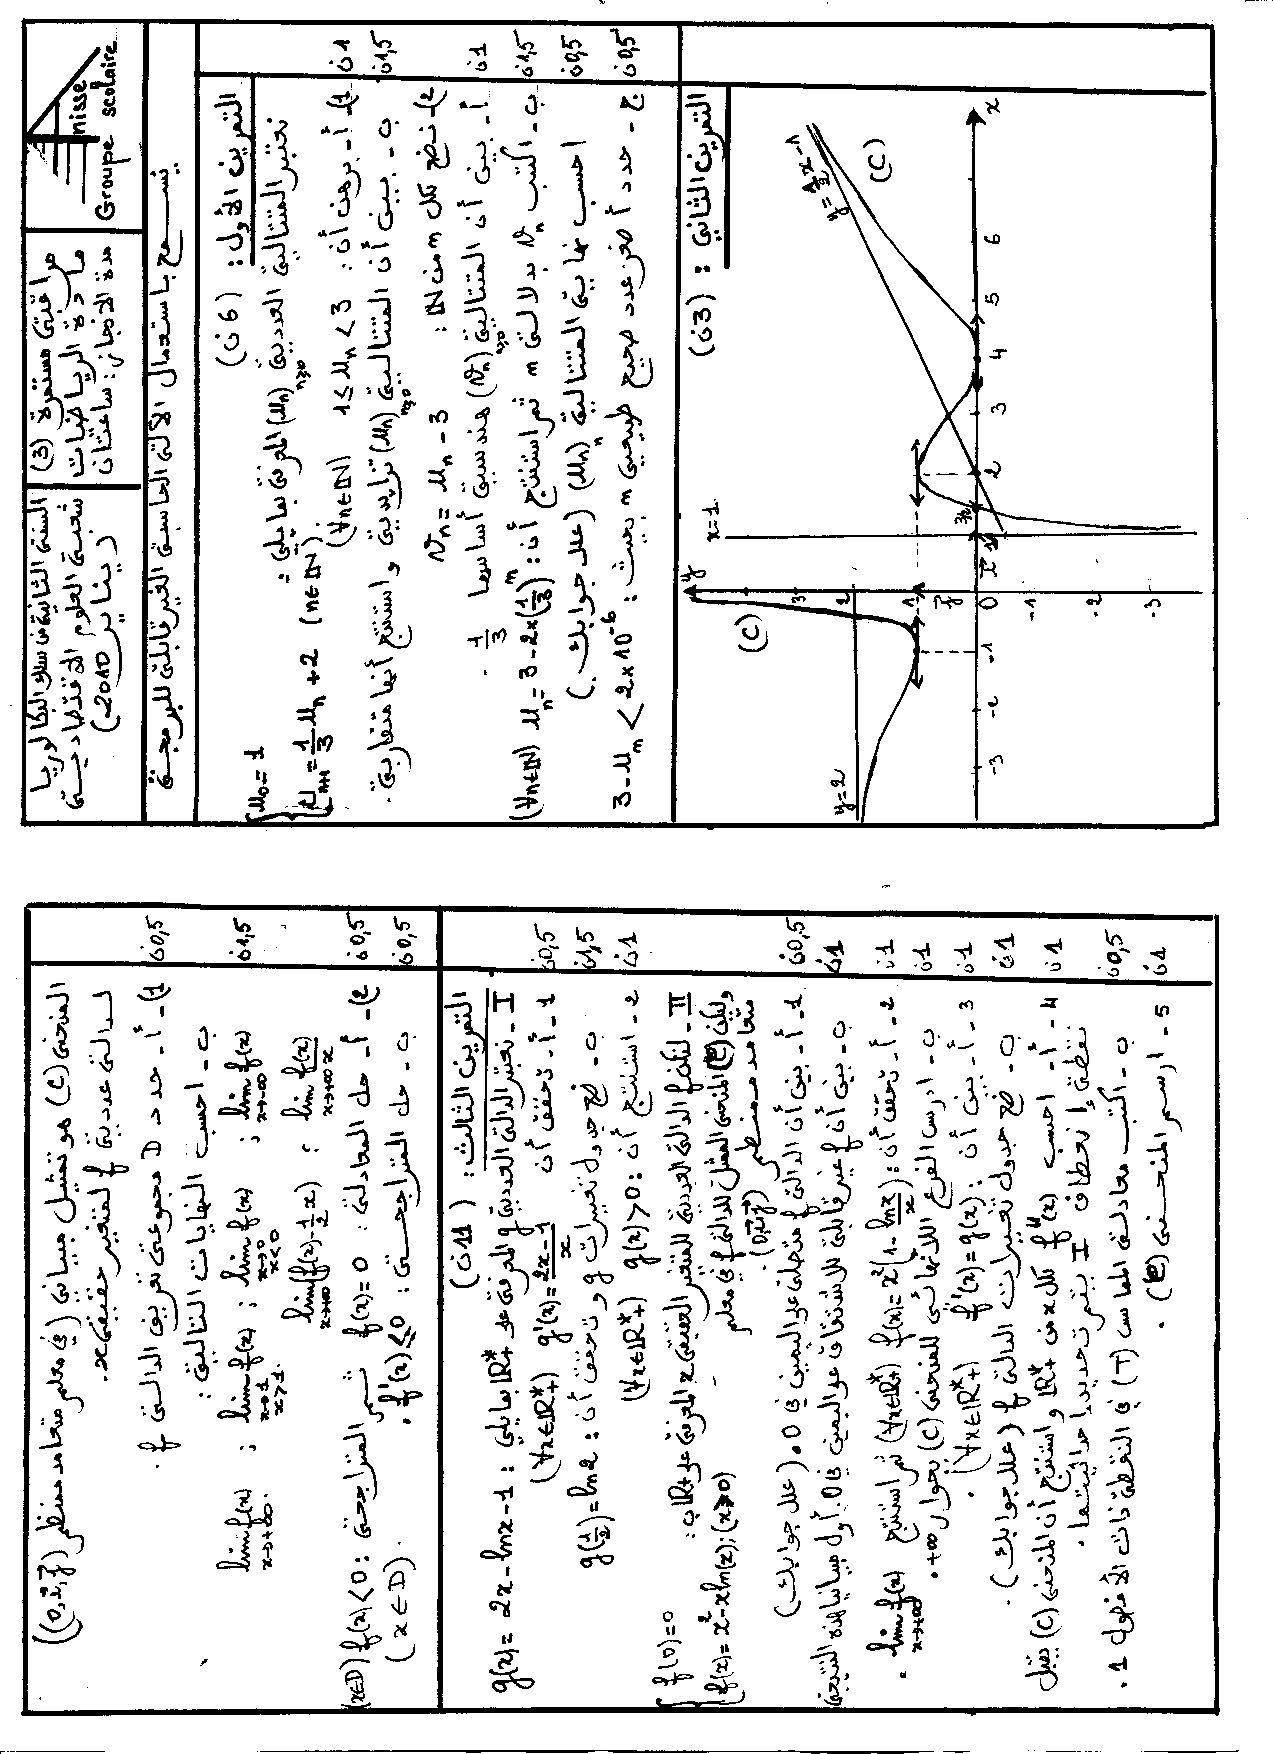 السنة الثانية من سلك البكالوريا
شعبة العلوم الاقتصادية
(يناير 2010)
مراقبة مستمرة (3)
مادة الرياضيات
مدة الانجاز: ساعتان
nisse
Groupe scolaire
يسمح باستعمال الآلة الحاسبة الغير قابلة للبرمجة
التمرين الأول: (6ن)
نعتبر المتتالية العددية (u_n)_{n≥0} المعرفة بما يلي:
{ u_0 = 1
{ u_{n+1} = 1/3 u_n + 2 (n∈ℕ)
1) أ- برهن أن: 1 ≤ u_n < 3 (∀n∈ℕ) 1ن
ب- بين أن المتتالية (u_n)_{n≥0} تزايدية واستنتج أنها متقاربة. 1,5ن
2) نضع لكل n من ℕ: v_n = u_n - 3
أ- بين أن المتتالية (v_n)_{n≥0} هندسية أساسها 1/3. 1ن
ب- اكتب v_n بدلالة n ثم استنتج أن: (∀n∈ℕ) u_n = 3 - 2×(1/3)^n 1,5ن
احسب نهاية المتتالية (u_n)_n (علل جوابك.) 0,5ن
ج- حدد أصغر عدد صحيح طبيعي n بحيث: 3 - u_n < 2×10^{-6} 0,5ن
التمرين الثاني: (3ن)
y
3
2
1
-1
-2
-3
-3 -2 -1 0 1 3/2 2 3 4 5 6
x
i
j
(C)
(C)
y=2
x=1
y=1/2 x-1
المنحنى (C) هو تمثيل مبياني (في معلم متعامد ممنظم (o,i,j))
لدالة عددية f لمتغير حقيقي x.
1) أ- حدد D مجموعة تعريف الدالة f. 0,5ن
ب- احسب النهايات التالية:
lim f(x) x→-∞ ; lim f(x) x→0 x<0 ; lim f(x) x→1 x>1 ; lim f(x) x→+∞ 1,5ن
lim f(x)/x x→+∞ ; lim(f(x) - 1/2 x) x→+∞
2) أ- حل المعادلة: f(x)=0 ثم المتراجحة: f(x)<0 (x∈D) 0,5ن
ب- حل المتراجحة: f'(x) ≤ 0 (x∈D). 0,5ن
التمرين الثالث: (11ن)
I- نعتبر الدالة العددية g المعرفة على ℝ*+ بما يلي: g(x) = 2x - lnx - 1
1- أ- تحقق أن g'(x) = (2x-1)/x (∀x∈ℝ*+) 0,5ن
ب- ضع جدول تغييرات g وتحقق أن: g(1/2) = ln2 1,5ن
2- استنتج أن: g(x)>0 (∀x∈ℝ*+) 1ن
II- لتكن f الدالة العددية للمتغير الحقيقي x المعرفة على ℝ+ ب:
{ f(0)=0
{ f(x)= x² - x ln(x); (x>0)
وليكن (C) المنحنى الممثل للدالة f في معلم متعامد ممنظم (o,i,j).
1- أ- بين أن الدالة f متصلة على اليمين في 0. (علل جوابك) 0,5ن
ب- بين أن f غير قابلة للاشتقاق على اليمين في 0. أول مبيانيا هذه النتيجة 1ن
2- أ- تحقق أن: f(x)= x²(1 - lnx/x) (∀x∈ℝ*+) ثم استنتج lim f(x) x→+∞. 1ن
ب- ادرس الفرع اللانهائي للمنحنى (C) بجوار +∞. 1ن
3- أ- بين أن: f'(x)=g(x) (∀x∈ℝ*+). 1ن
ب- ضع جدول تغييرات الدالة f (علل جوابك). 1ن
4- أ- احسب f''(x) لكل x من ℝ*+ واستنتج أن المنحنى (C) يقبل 1ن
نقطة إنعطاف I يتم تحديد إحداثيتها.
ب- اكتب معادلة المماس (T) في النقطة ذات الأفصول 1. 0,5ن
5- ارسم المنحنى (C). 1ن